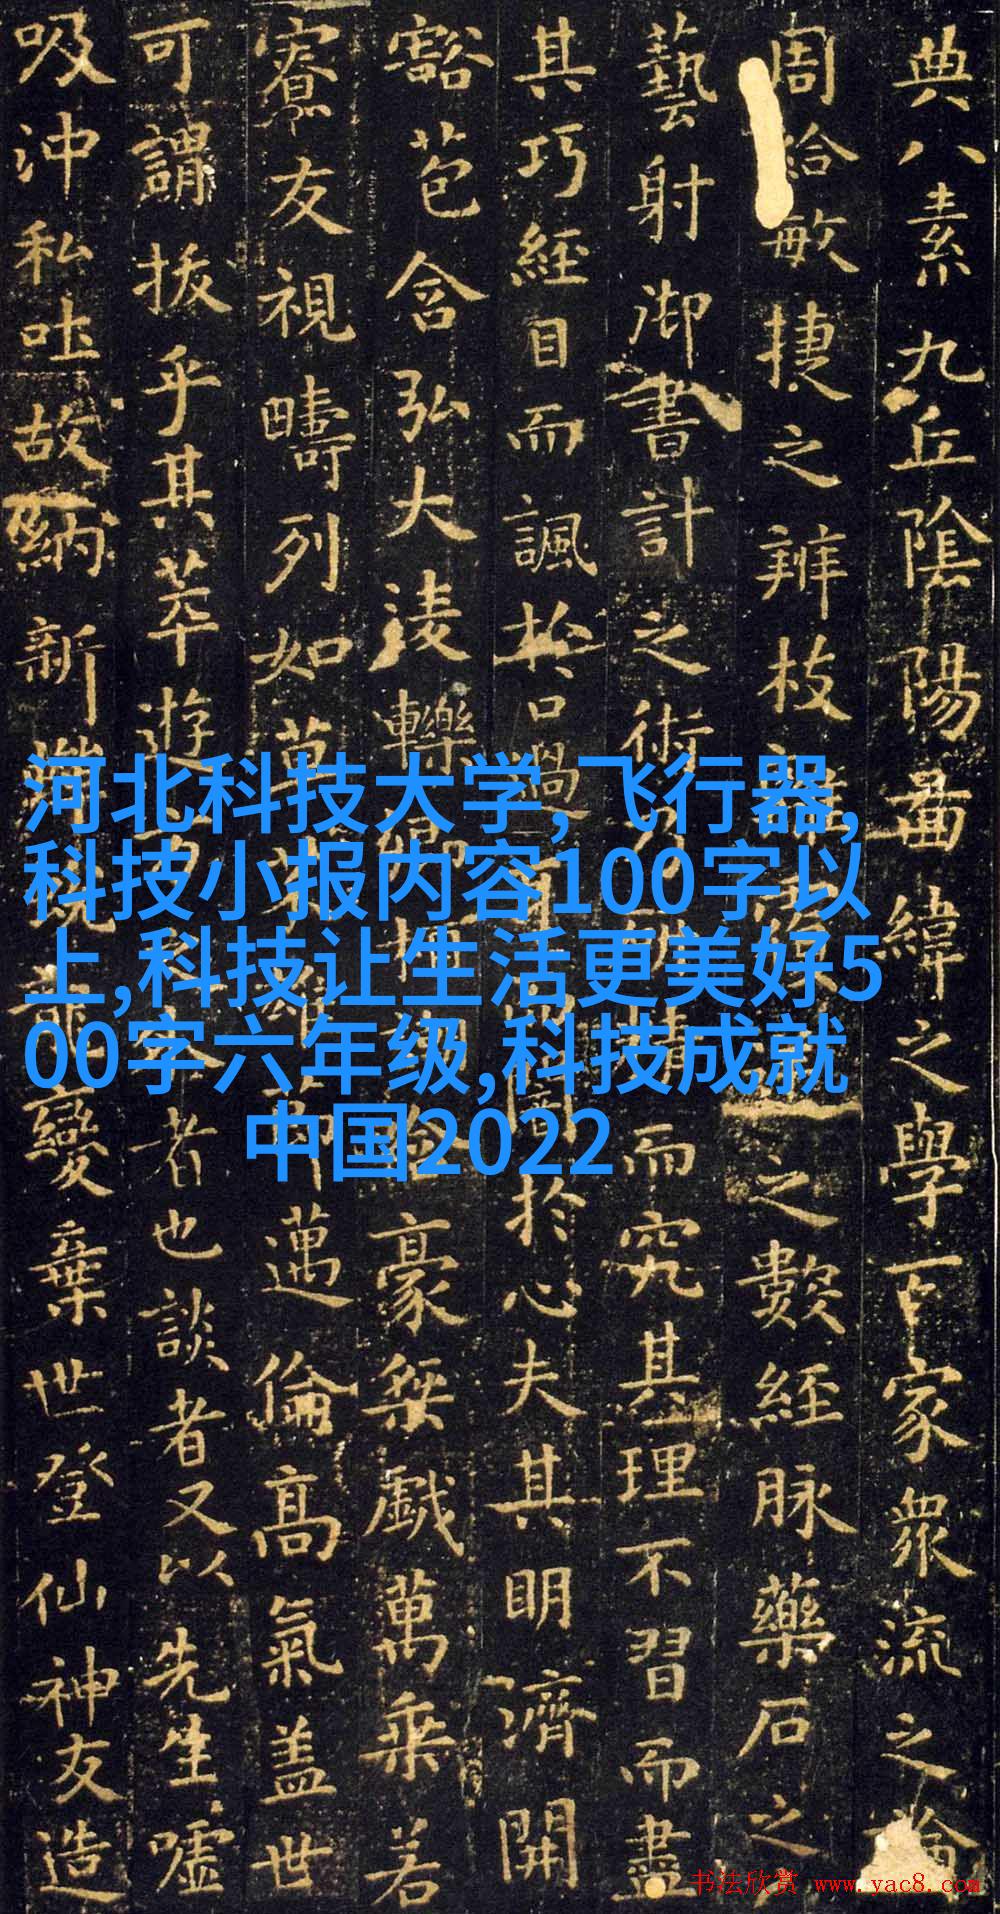 典八素九丘陰陽圖緯之學百家衆流之論
周給敏捷之辨枝之數經脉藥石之
藝射御書計之術而究其理不習而盡
其巧經目而諷於口過於心夫其明濟開
豁苞含弘大淩轢豪桀戲萬乘若
寮友視疇列如草邁倫高氣盖世
可謂拔乎其萃遊者也談者又以先生噓
吸沖私吐故納新變棄世登仙神友造
河北科技大学,飞行器,
科技小报内容100字以
上,科技让生活更美好5
00字六年级,科技成就
中国2022
书法欣赏 www.yac8.com